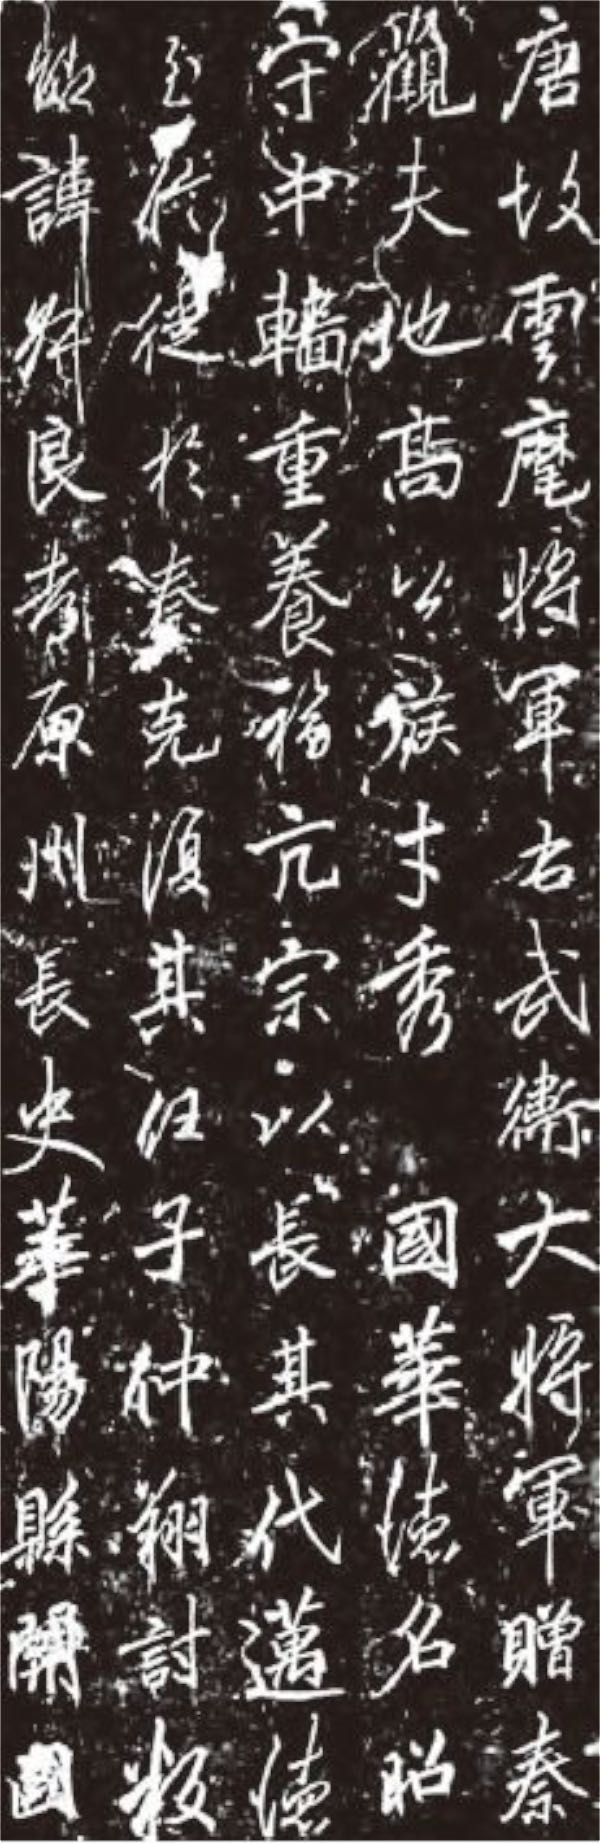 唐故雲麾將軍右武衛大將軍贈秦
觀夫地高以族才秀國華德名昭
守中轖重養福亢宗以長其代邁德
至徙於秦克復其任子仲翔討叛
諱良考原州長史華陽縣開國